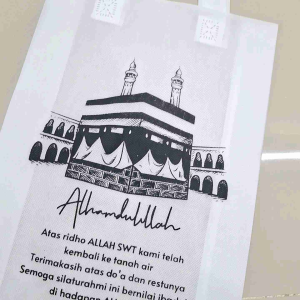 Alhamdulillah
Atas ridho ALLAH SWT kami telah
kembali ke tanah air
Terimakasih atas do'a dan restunya
Semoga silaturahmi ini bernilai
di hadapan